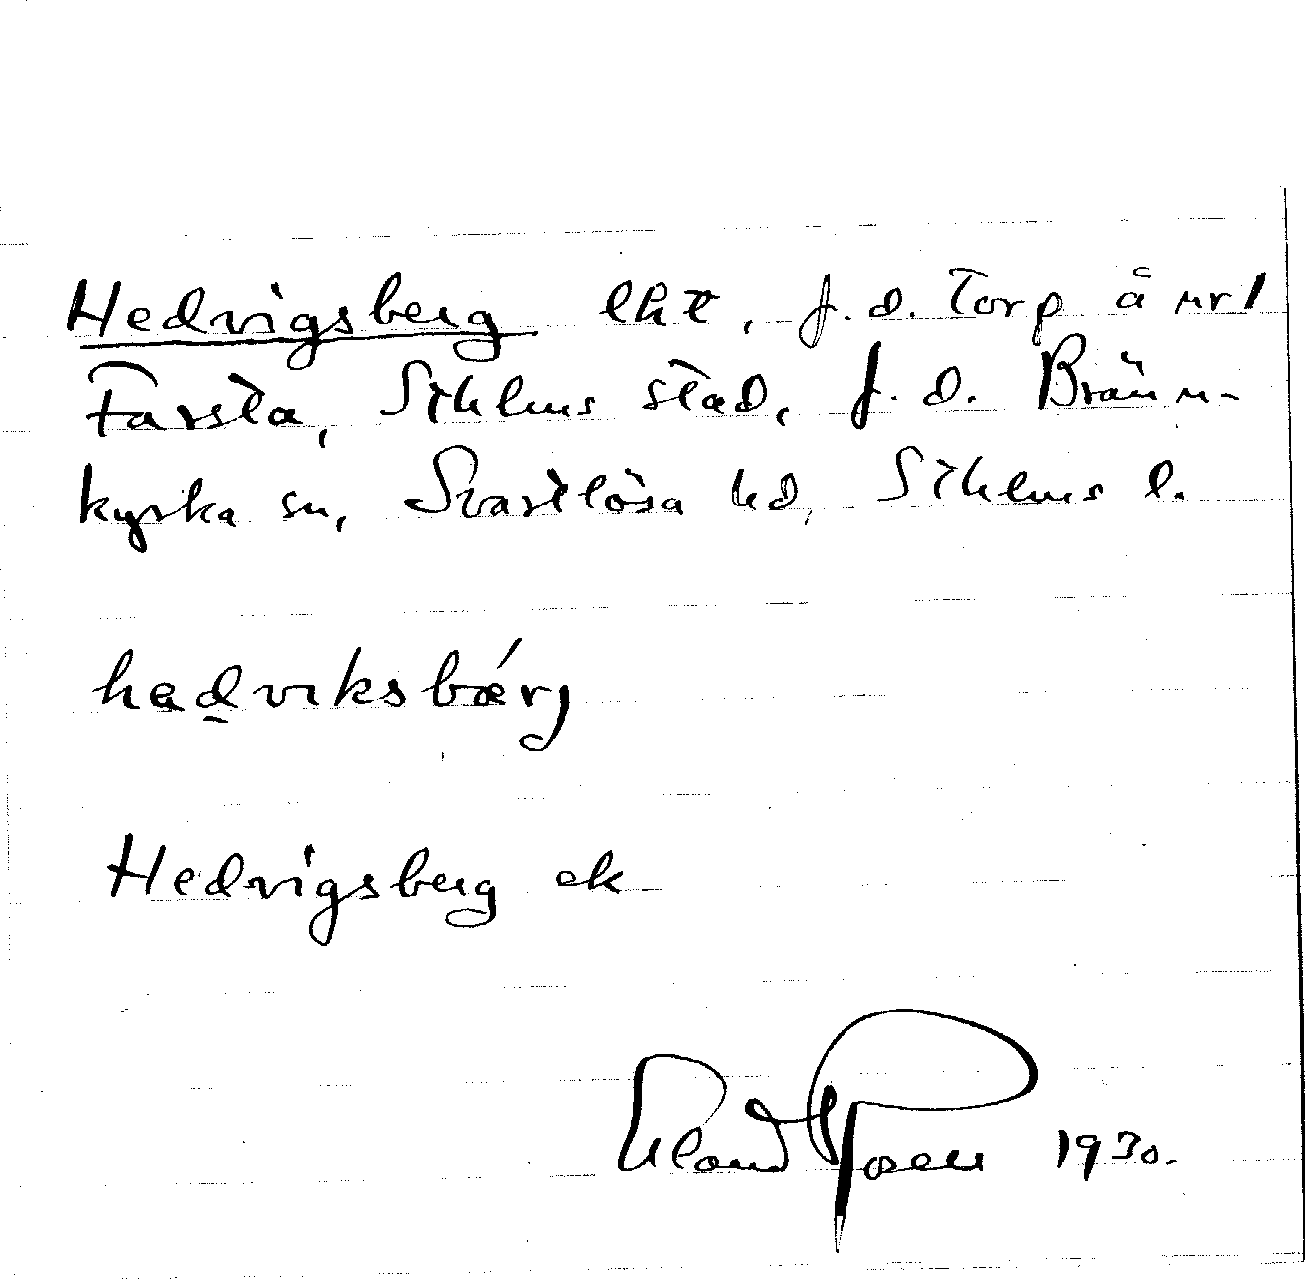 Hedvigsberg lht, f.d. Torp å nr 1
Farsta, Sthlms stad, f. d. Bränn-
kyrka sn, Svartlösa hd, Sthlms l.
hedviksbærj
Hedvigsberg ek
1930.